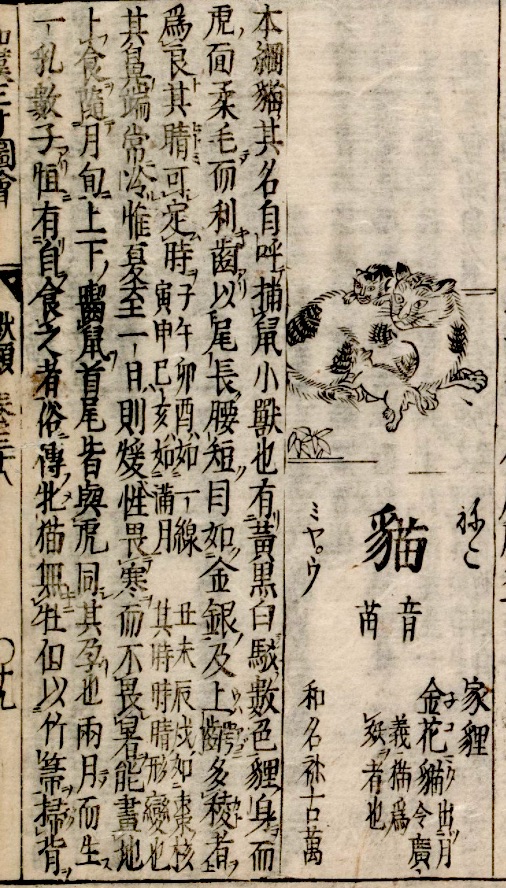 ねこ
貓
音
苗
ミヤ〇ウ
家貍
金花猫
出月
令廣
義猫爲
妖者也
和名 祢古萬
本綱貓其名自呼捕鼠小獸也有黃黒白駁數色貍身而
虎面柔毛而利齒以尾長腰短目如金銀及上齶多稜者
爲良其睛可定時子午卯酉如一線寅申巳亥如滿月丑未辰戌如棗核其時時睛形變也
其鼻端常冷惟夏至一日則煖性畏寒而不畏暑能畫地
卜食隨月旬上下齧鼠首尾皆與虎同其孕也兩月而生
一乳數子恒有自食之者俗傳牝猫無牡但以竹箒掃背
和漢三才圖會
獸類 卷三十八
〇十九